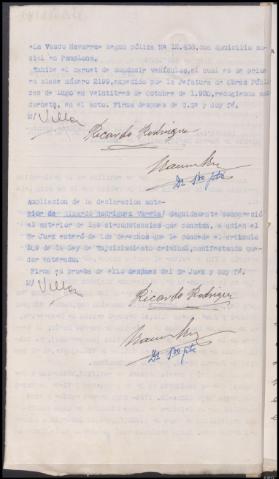 «La Vasco Navarra» según póliza Nº 12.638, con domicilio so-
cial en Pamplona.
Exhibe el carnet de conducir vehículos, el cual es de prime-
ra clase número 2199, expedido por la Jefatura de Obras Públi-
cas de Lugo en veintitres de Octubre de 1.930, recogiendo
en el acto. Firma despues de S.Sª y doy fé.
Villar
Ricardo Rodriguez
Ampliacion de la declaracion ante-
rior de Ricardo Rodriguez
el anterior de las circunstancias que constan, a quien el
Sr Juez enteró de los derechos que le concede el artículo
109 de la Ley de Enjuiciamiento criminal, manifestando que-
dar enterado.
Firma en prueba de ello despues del Sr Juez y doy fé.
Villar
Ricardo Rodriguez